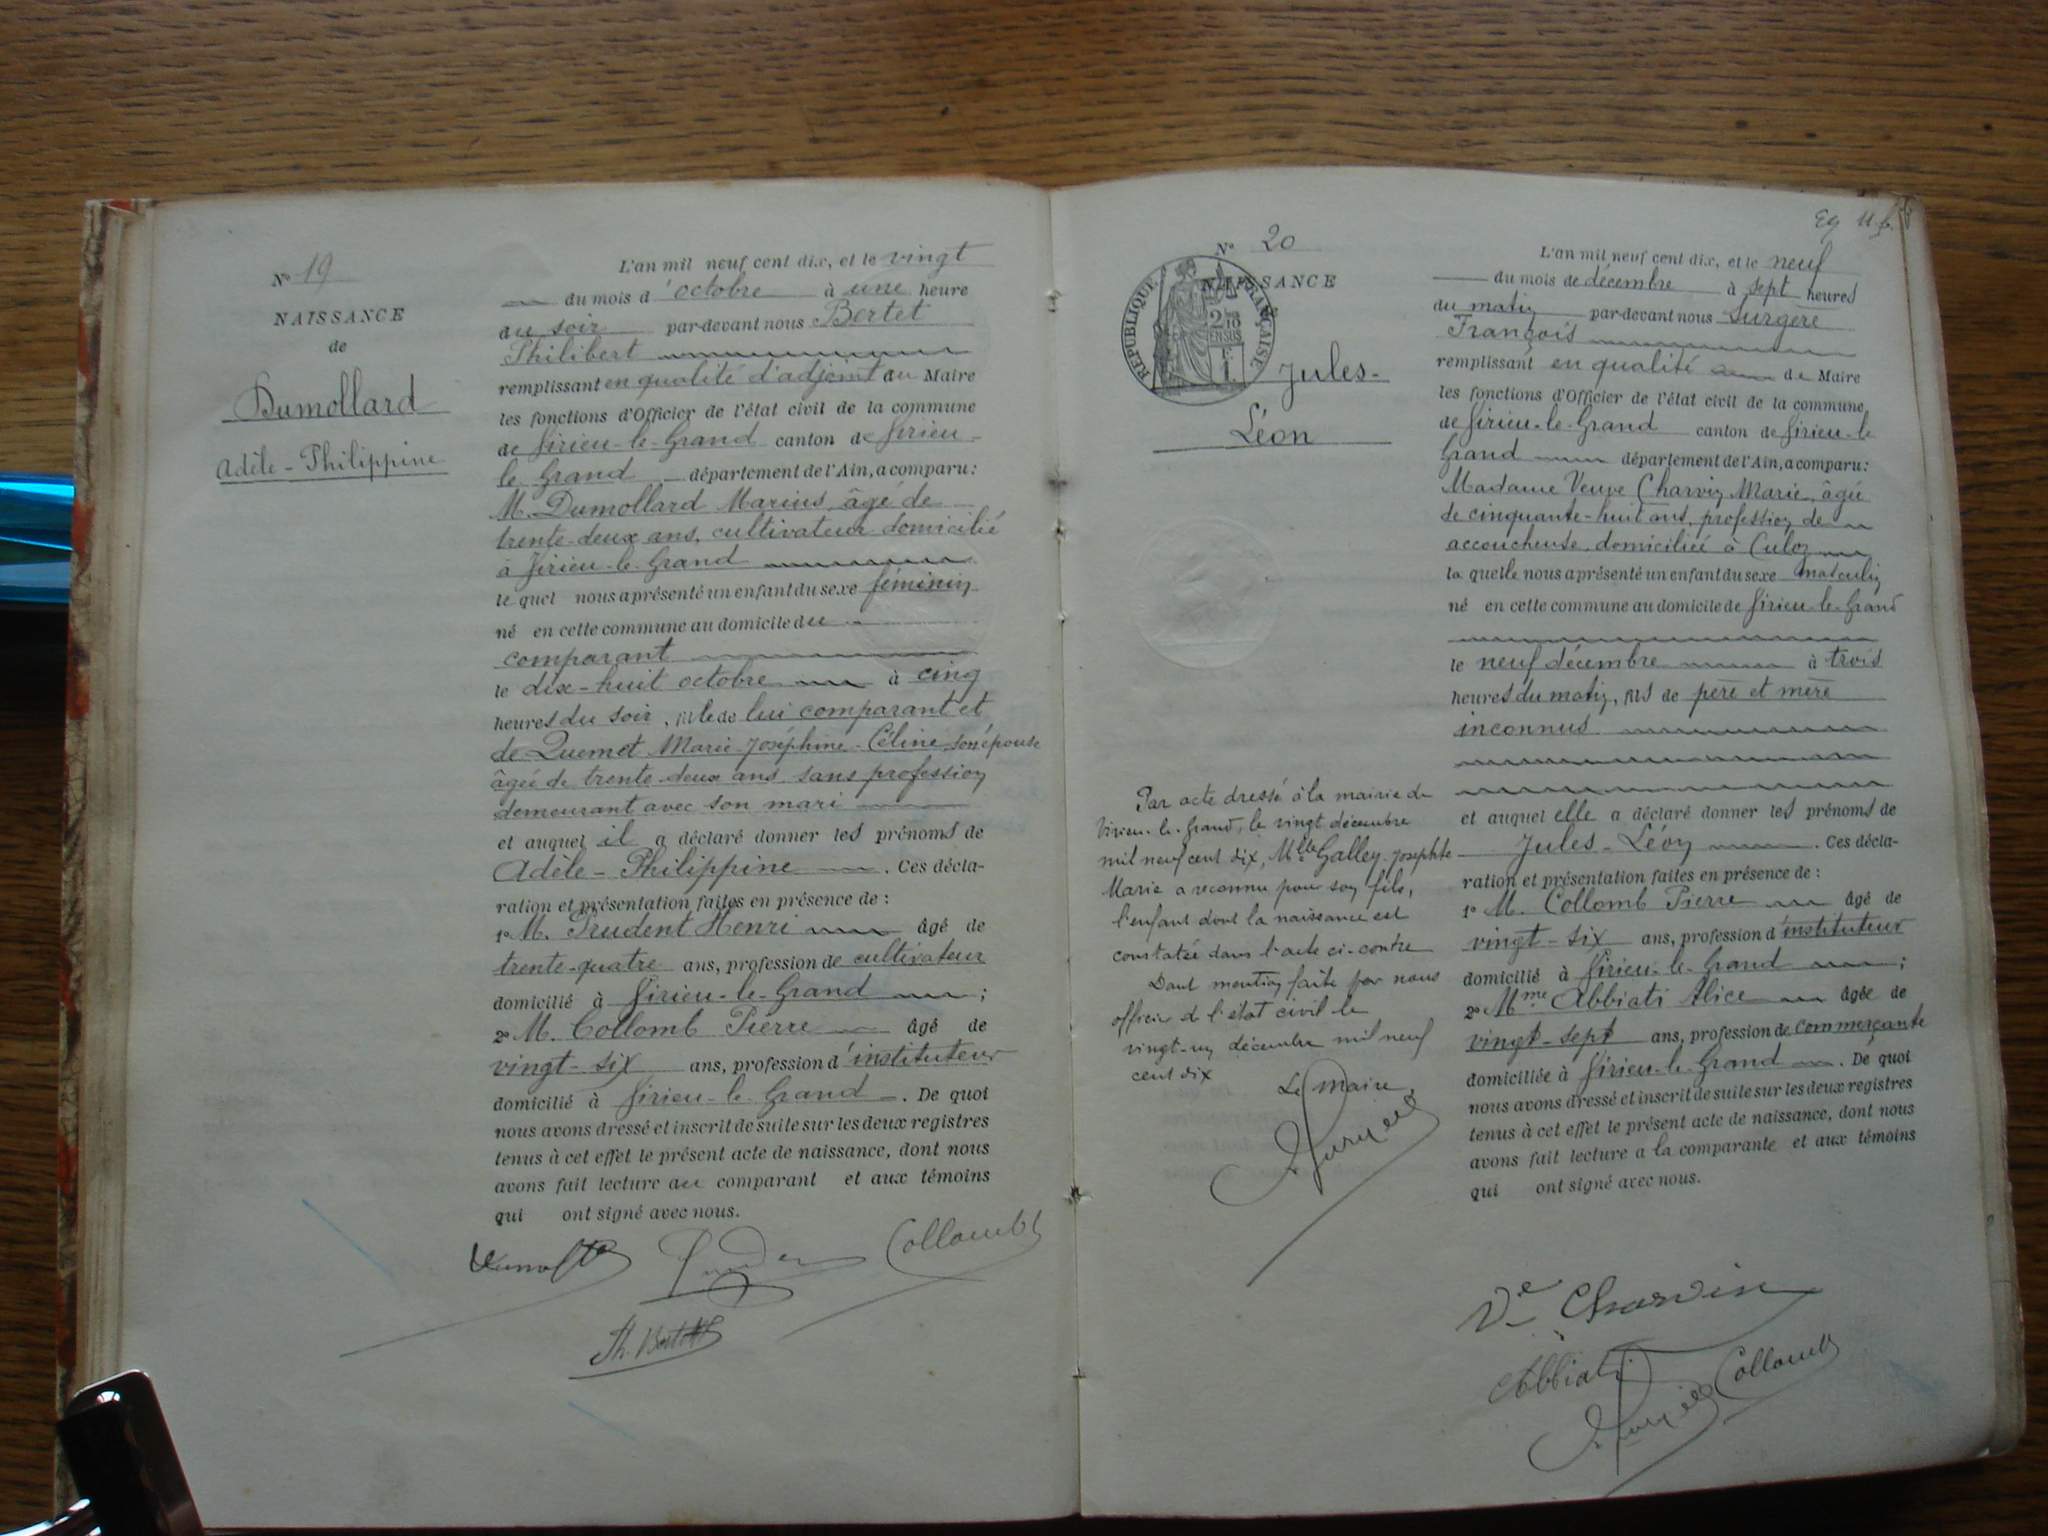 N° 19
NAISSANCE
de
Dumollard
Adèle - Philippine
L'an mil neuf cent dix, et le vingt
du mois d'octobre à une heure
du soir par-devant nous Bertet
Philibert
remplissant en qualité d'adjoint au Maire
les fonctions d'Officier de l'état civil de la commune
de Virieu-le-Grand canton de Virieu-
le Grand département de l'Ain, a comparu:
M. Dumollard Marius, âgé de
trente-deux ans, cultivateur domicilié
à Virieu-le-Grand
le quel nous a présenté un enfant du sexe féminin
né en cette commune au domicile du
comparant
le dix-huit octobre à cinq
heures du soir, fille de lui comparant et
de Quemet Marie-Joséphine-Céline son épouse
âgée de trente-deux ans sans profession
demeurant avec son mari
et auquel il a déclaré donner les prénoms de
Adèle-Philippine. Ces décla-
ration et présentation faites en présence de :
1° M. Prudent Henri âgé de
trente-quatre ans, profession de cultivateur
domicilié à Virieu-le-Grand ;
2° M. Collomb Pierre âgé de
vingt-six ans, profession d'instituteur
domicilié à Virieu-le-Grand. De quoi
nous avons dressé et inscrit de suite sur les deux registres
tenus à cet effet le présent acte de naissance, dont nous
avons fait lecture au comparant et aux témoins
qui ont signé avec nous.
Collomb
Ph. Bertet
N° 20
NAISSANCE
RÉPUBLIQUE FRANÇAISE
Jules-
Léon
L'an mil neuf cent dix, et le neuf
du mois de décembre à sept heures
du matin par-devant nous Surgère
François
remplissant en qualité de Maire
les fonctions d'Officier de l'état civil de la commune
de Virieu-le-Grand canton de Virieu-le
Grand département de l'Ain, a comparu:
Madame Veuve Charvin Marie, âgée
de cinquante-huit ans, profession de
accoucheuse domiciliée à Culoz
la quelle nous a présenté un enfant du sexe masculin
né en cette commune au domicile de Virieu-le-Grand
le neuf décembre à trois
heures du matin, fils de père et mère
inconnus
et auquel elle a déclaré donner les prénoms de
Jules-Léon. Ces décla-
ration et présentation faites en présence de :
1° M. Collomb Pierre âgé de
vingt-six ans, profession d'instituteur
domicilié à Virieu-le-Grand ;
2° Mme Abbiati Alice âgée de
vingt-sept ans, profession de commerçante
domiciliée à Virieu-le-Grand. De quoi
nous avons dressé et inscrit de suite sur les deux registres
tenus à cet effet le présent acte de naissance, dont nous
avons fait lecture a la comparante et aux témoins
qui ont signé avec nous.
Par acte dressé à la mairie de
Virieu-le-Grand, le vingt décembre
mil neuf cent dix, Mlle Galley Josephte
Marie a reconnu pour son fils,
l'enfant dont la naissance est
constatée dans l'acte ci-contre
Dont mention faite par nous
officier de l'état civil le
vingt-un décembre mil neuf
cent dix
Le Maire
Surgère
Ve Charvin
Abbiati
Surgère Collomb